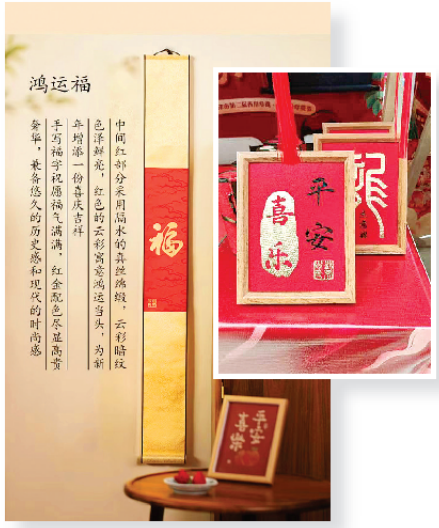 鸿运福
中间红部分采用隔水的真丝绵缎，云彩暗纹
色泽鲜亮，红色的云彩寓意鸿运当头，为新
年增添一份喜庆吉祥
手写福字祝愿福气满满，红金配色尽显高贵
奢华，兼备悠久的历史感和现代的时尚感
福
平安
喜乐
龍
平安
喜樂